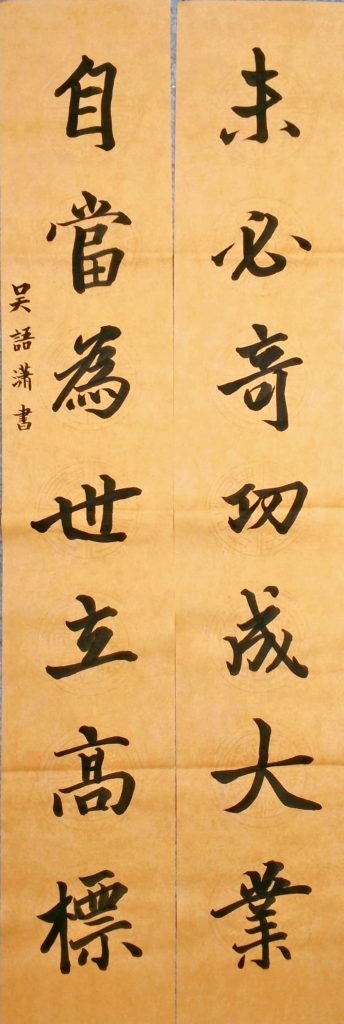 未必奇功成大業
自當為世立高標
吳語瀟書